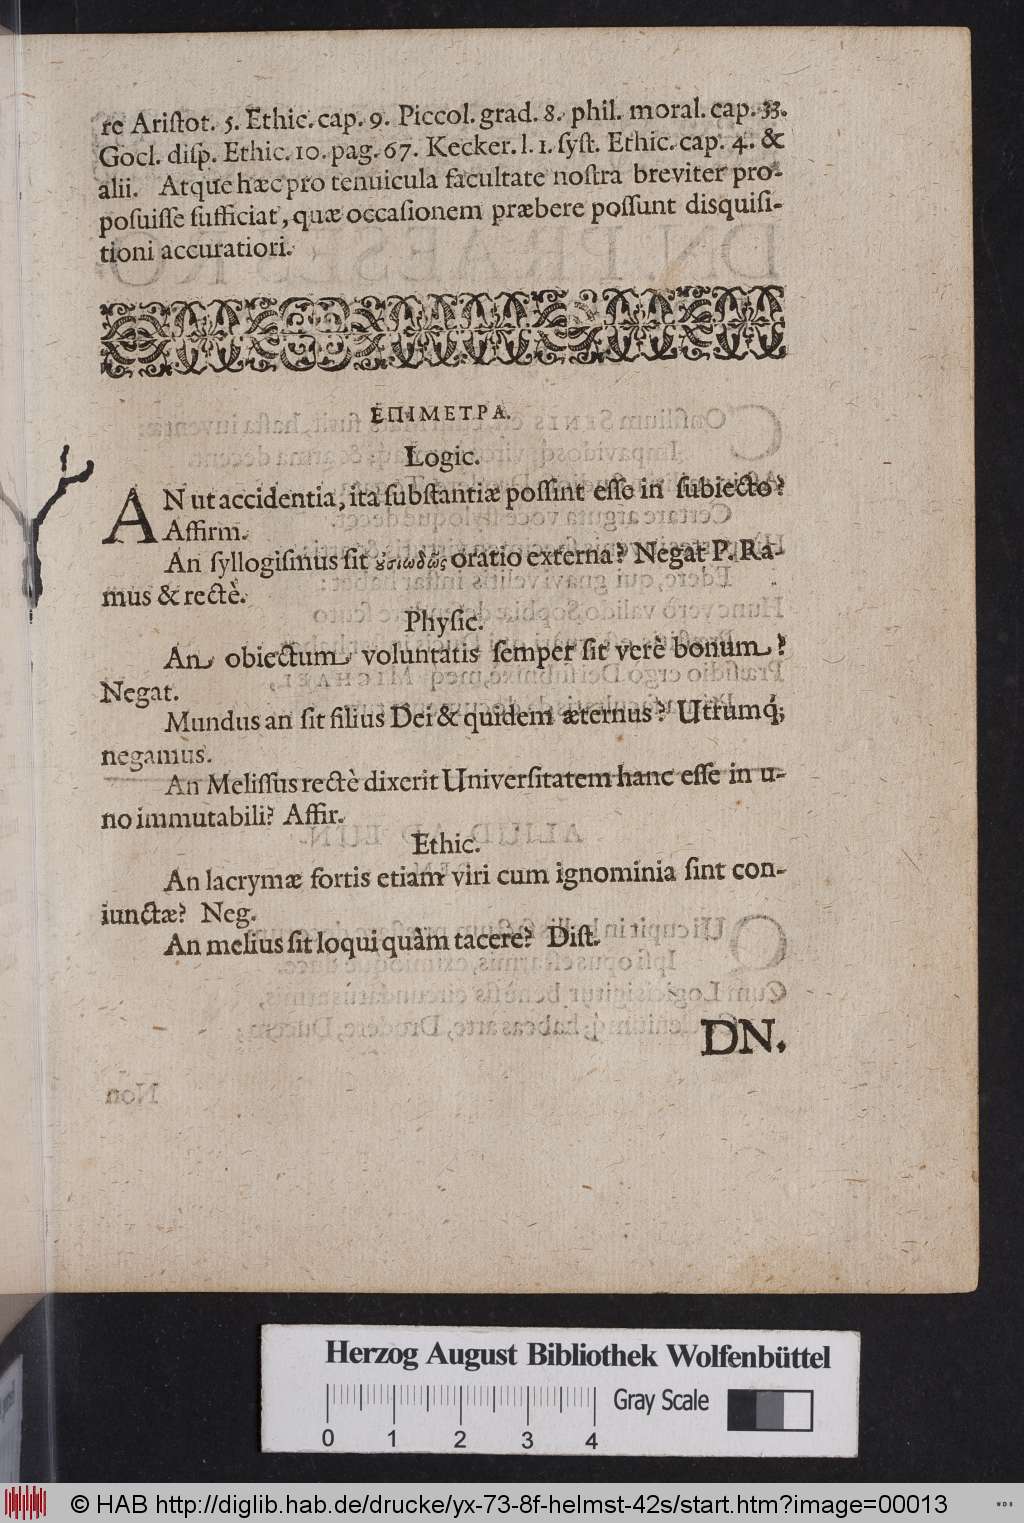 re Ariſtot. 5. Ethic. cap. 9. Piccol. grad. 8. phil. moral. cap. 33.
Gocl. diſp. Ethic. 10. pag. 67. Kecker. l. 1. ſyſt. Ethic. cap. 4. &
alii. Atque hæc pro tenuicula facultate noſtra breviter pro-
poſuiſſe ſufficiat, quæ occaſionem præbere poſſunt disquiſi-
tioni accuratiori.
ΕΠΙΜΕΤΡΑ.
Logic.
AN ut accidentia, ita ſubſtantiæ poſſint eſſe in ſubiecto?
Affirm.
An ſyllogiſmus ſit ȣσιωδῶς oratio externa? Negat P. Ra-
mus & rectè.
Phyſic.
An obiectum voluntatis ſemper ſit verè bonum?
Negat.
Mundus an ſit filius Dei & quidem æternus? Utrumq́;
negamus.
An Meliſſus rectè dixerit Univerſitatem hanc eſſe in u-
no immutabili? Affir.
Ethic.
An lacrymæ fortis etiam viri cum ignominia ſint con-
iunctæ? Neg.
An melius ſit loqui quàm tacere? Diſt.
DN.
Herzog August Bibliothek Wolfenbüttel
Gray Scale
0 1 2 3 4
© HAB http://diglib.hab.de/drucke/yx-73-8f-helmst-42s/start.htm?image=00013